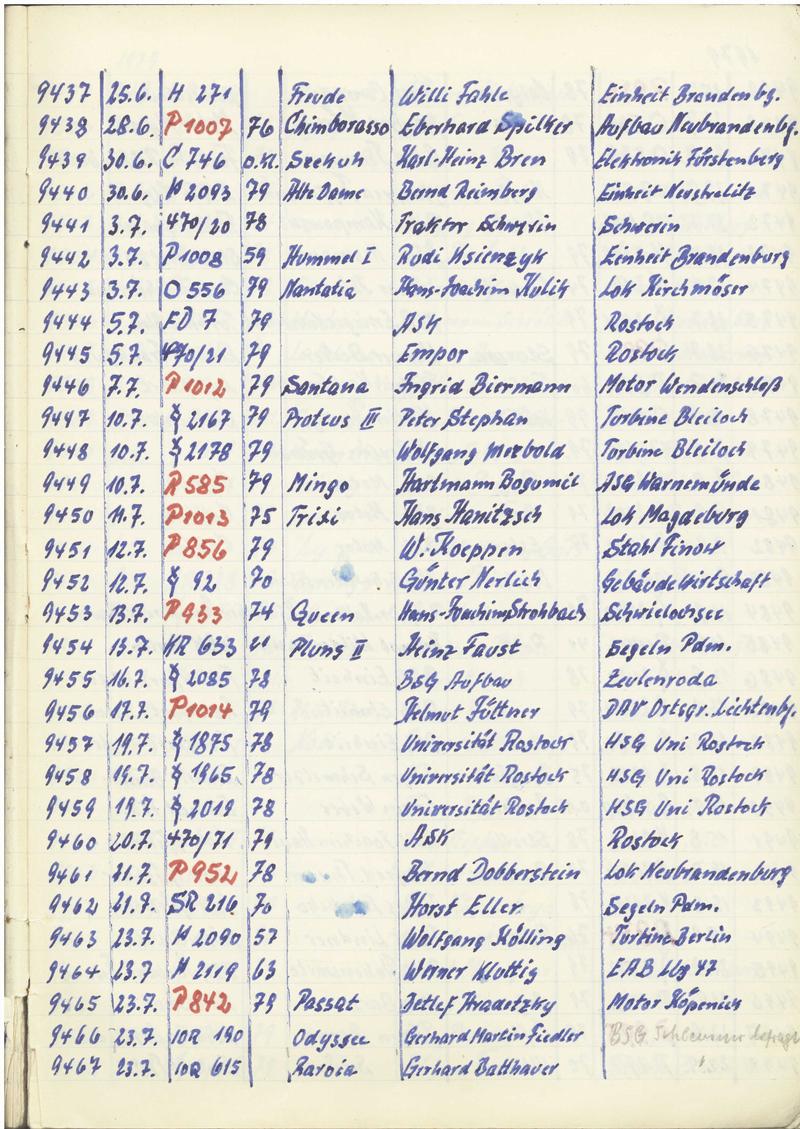 9437 25.6. H 271 Freude Willi Fahle Einheit Brandenbg.
9438 28.6. P 1007 76 Chimborasso Eberhard Spilker Aufbau Neubrandenbg.
9439 30.6. C 746 o.Kl. Seekuh Karl-Heinz Bren Elektronik Fürstenberg
9440 30.6. H 2093 79 Alte Dame Bernd Reimberg Einheit Neustrelitz
9441 3.7. 470/20 78 Traktor Schwerin Schwerin
9442 3.7. P 1008 59 Hummel I Rudi Ksienzyk Einheit Brandenburg
9443 3.7. O 556 79 Nantatia Hans-Joachim Kulik Lok Kirchmöser
9444 5.7. FD 7 79 ASK Rostock
9445 5.7. 470/21 79 Empor Rostock
9446 7.7. P 1012 79 Santana Ingrid Biermann Motor Wendenschloß
9447 10.7. 2167 79 Proteus III Peter Stephan Turbine Bleiloch
9448 10.7. 2178 79 Wolfgang Merbold Turbine Bleiloch
9449 10.7. R 585 79 Mingo Hartmann Bogumil ASG Warnemünde
9450 11.7. P 1013 75 Trixi Hans Hanitzsch Lok Magdeburg
9451 12.7. P 856 79 W. Koeppen Stahl Finow
9452 12.7. 92 70 Günter Nerlich Gebäudewirtschaft
9453 13.7. P 933 74 Queen Hans-Joachim Strohbach Schwielochsee
9454 13.7. KR 633 Pluns II Heinz Faust Segeln Pdm.
9455 16.7. 2085 78 BSG Aufbau Zeulenroda
9456 17.7. P 1014 79 Helmut Füttner DAV Ortsgr. Lichtenbg.
9457 19.7. 1875 78 Universität Rostock HSG Uni Rostock
9458 19.7. 1965 78 Universität Rostock HSG Uni Rostock
9459 19.7. 2019 78 Universität Rostock HSG Uni Rostock
9460 20.7. 470/71 79 ASK Rostock
9461 21.7. P 952 78 Bernd Dobberstein Lok Neubrandenburg
9462 21.7. SR 216 70 Horst Eller Segeln Pdm.
9463 23.7. H 2090 57 Wolfgang Kölling Turbine Berlin
9464 23.7 H 2119 63 Werner Kluttig EAB 47
9465 23.7. P 842 79 Passat Detlef Hradetzky Motor Köpenick
9466 23.7. 10R 190 Odyssee Gerhard Martin Fiedler BSG
9467 23.7. 10R 615 Raroia Gerhard Batthauer